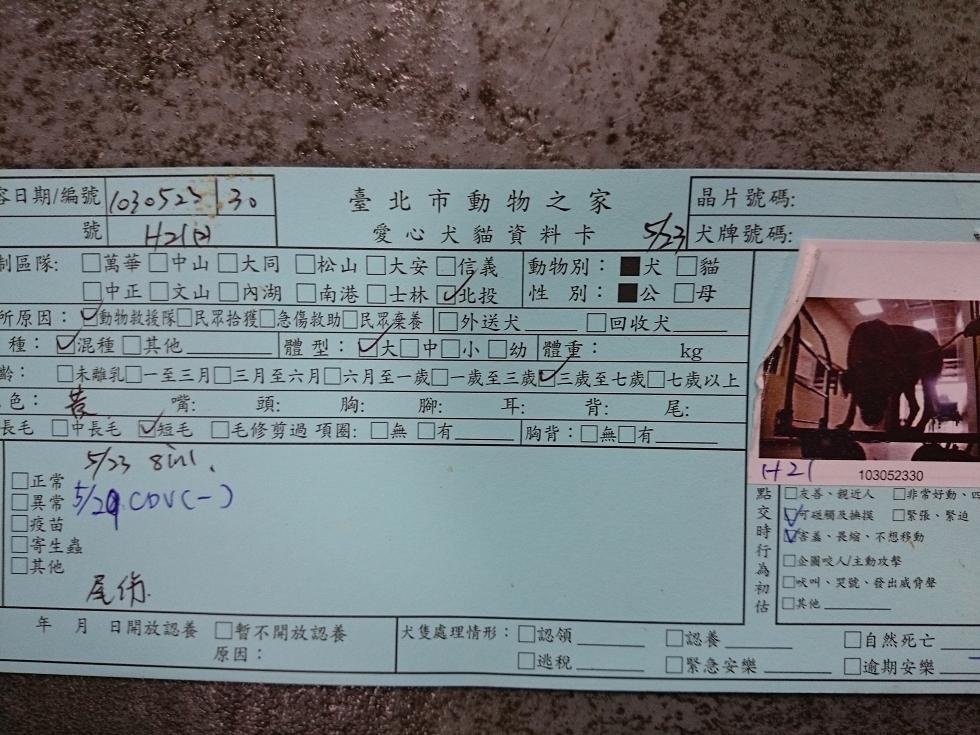 容日期/編號 1030523 30
臺北市動物之家
晶片號碼:
號 H21(2)
愛心犬貓資料卡 5/23
犬牌號碼:
制區隊: □萬華 □中山 □大同 □松山 □大安 □信義 動物別: ■犬 □貓
□中正 □文山 □內湖 □南港 □士林 ☑北投 性 別: ■公 □母
所原因: ☑動物救援隊 □民眾拾獲 □急傷救助 □民眾棄養 □外送犬____ □回收犬____
種: ☑混種 □其他____ 體 型: ☑大 □中 □小 □幼 體重: kg
齡: □未離乳 □一至三月 □三月至六月 □六月至一歲 □一歲至三歲 ☑三歲至七歲 □七歲以上
色: 黃 嘴: 頭: 胸: 腳: 耳: 背: 尾:
長毛 □中長毛 ☑短毛 □毛修剪過 項圈: □無 □有____ 胸背: □無 □有____
5/23 8in1.
□正常
□異常 5/29 CDV(-)
□疫苗
□寄生蟲
□其他
尾傷.
H21 103052330
點交時行為初估
□友善、親近人 □非常好動、四
☑可碰觸及撫摸 □緊張、緊迫
☑害羞、畏縮、不想移動
□企圖咬人/主動攻擊
□吠叫、哭號、發出威脅聲
□其他____
年 月 日開放認養 □暫不開放認養
原因:
犬隻處理情形: □認領____ □認養____ □自然死亡
□逃脫____ □緊急安樂____ □逾期安樂